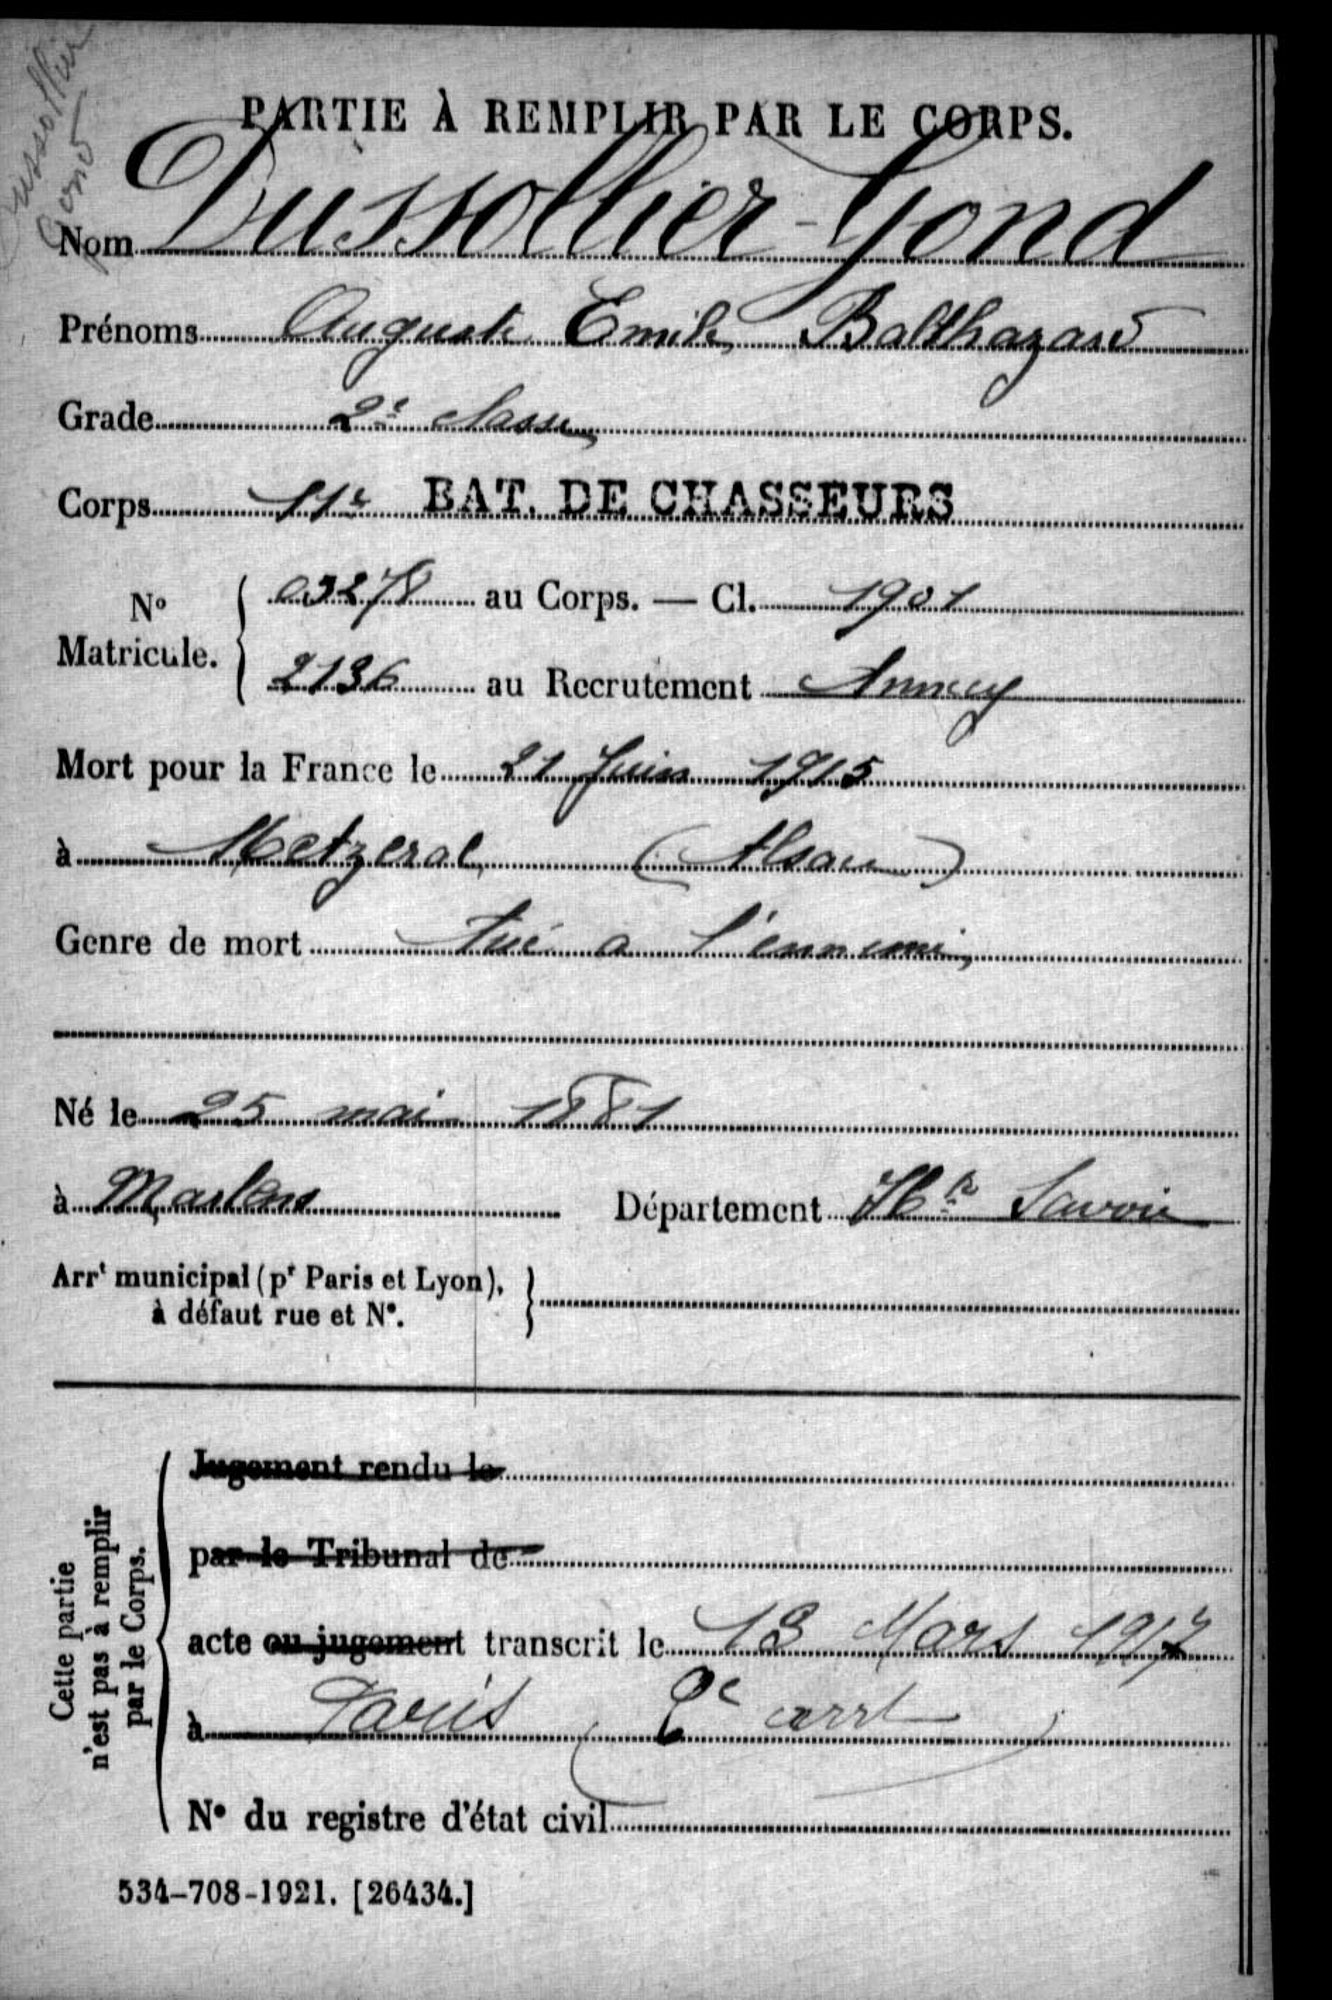 Dussollier
Gond
PARTIE À REMPLIR PAR LE CORPS.
Nom Dussollier-Gond
Prénoms Auguste Emile Balthazard
Grade 2e classe
Corps 11e BAT. DE CHASSEURS
No Matricule. { 03278 au Corps. — Cl. 1901
2136 au Recrutement Annecy
Mort pour la France le 21 Juin 1915
à Metzeral (Alsace)
Genre de mort tué a l'ennemi
Né le 25 mai 1881
à Marlens Département Hte Savoie
Arrt municipal (pr Paris et Lyon),
à défaut rue et No.
Cette partie
n'est pas à remplir
par le Corps.
Jugement rendu le
par le Tribunal de
acte ou jugement transcrit le 13 Mars 1917
à Paris (2e arrt)
No du registre d'état civil
534-708-1921. [26434.]